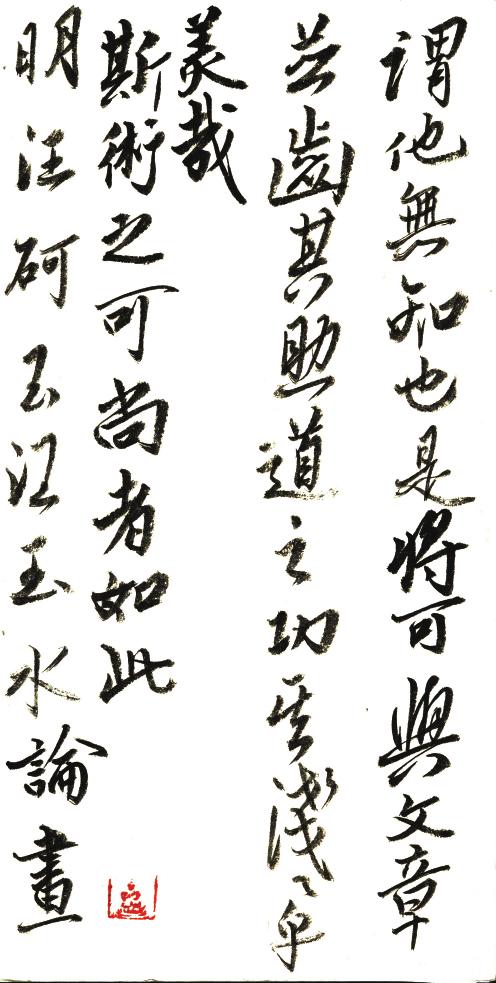 謂他無知也是將可與文章
並齒其助道之功豈淺々乎
美哉
斯術之可尚者如此
明汪砢玉汪玉水論畫